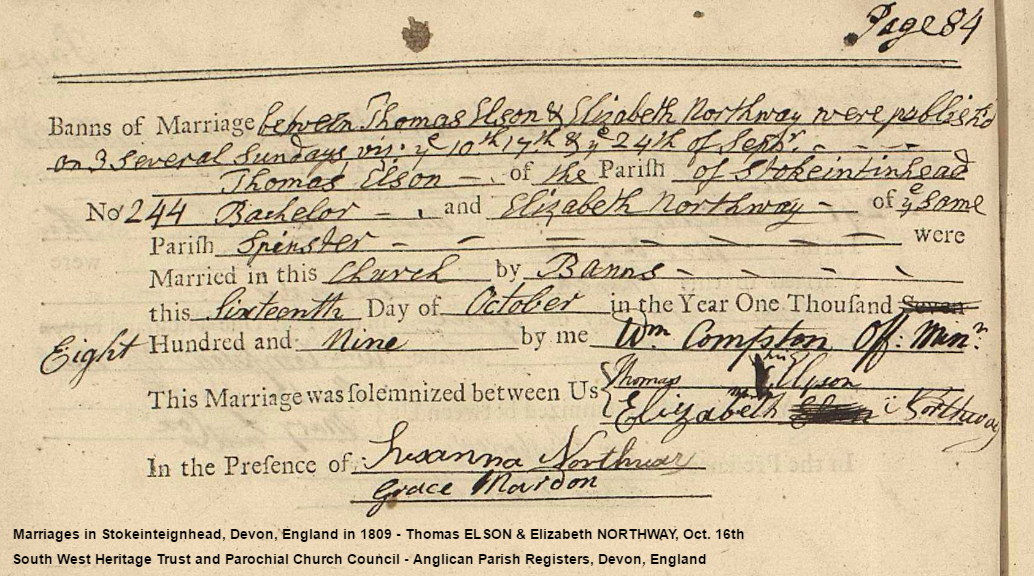 Page 84
Banns of Marriage between Thomas Elson & Elizabeth Northway were publish'd
on 3 several Sundays viz: ye 10th 17th & ye 24th of Sepbr.
Thomas Elson of the Parish of Stokeintinhead
No 244 Bachelor and Elizabeth Northway of ye same
Parish Spinster were
Married in this Church by Banns
this Sixteenth Day of October in the Year One Thousand Seven
Eight Hundred and Nine by me Wm Compston Off: Minr.
This Marriage was solemnized between Us Thomas Elpson
Elizabeth Northway
In the Presence of Susanna Northway
Grace Mardon
Marriages in Stokeinteignhead, Devon, England in 1809 - Thomas ELSON & Elizabeth NORTHWAY, Oct. 16th
South West Heritage Trust and Parochial Church Council - Anglican Parish Registers, Devon, England